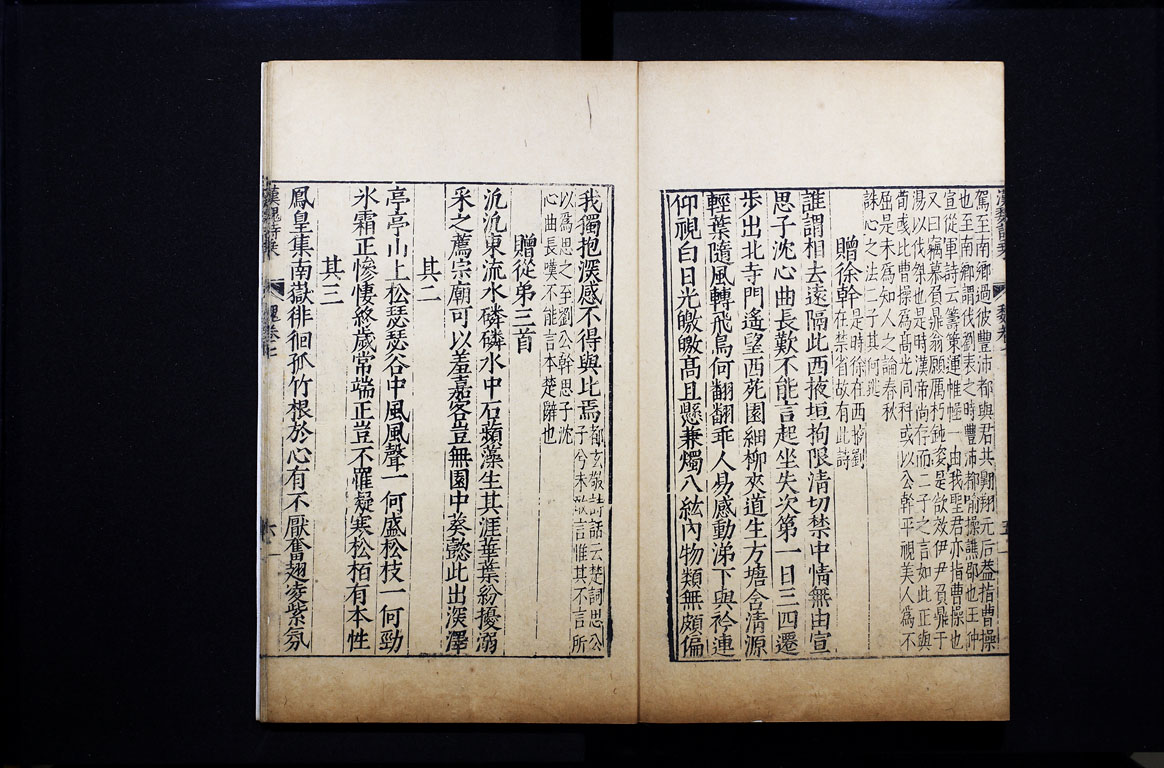 駕至南鄉過彼豐沛都與君共翺翔元后葢指曹操
也至南鄉謂伐劉表之時豐沛都喻操譙郡也王仲
宣從軍詩云籌策運帷幄一由我聖君亦指曹操也
又曰竊慕負鼎翁願厲朽鈍姿是欲效伊尹負鼎于
湯以伐桀也是時漢帝尚存而二子之言如此正與
荀彧比曹操爲高光同科或以公幹平視美人爲不
屈是未爲知人之論春秋
誅心之法二子其何逃
贈徐幹
是時徐在西掖劉
在禁省故有此詩
誰謂相去遠隔此西掖垣拘限清切禁中情無由宣
思子沈心曲長歎不能言起坐失次第一日三四遷
步出北寺門遙望西苑園細柳夾道生方塘含清源
輕葉隨風轉飛鳥何翻翻乖人易感動涕下與衿連
仰視白日光皦皦髙且懸兼燭八紘內物類無頗偏
我獨抱深感不得與比焉
都玄敬詩話云楚詞思公
子兮未敢言惟其不言所
以爲思之至劉公幹思子沈
心曲長嘆不能言本楚辭也
贈從弟三首
汎汎東流水磷磷水中石蘋藻生其涯華葉紛擾溺
采之薦宗廟可以羞嘉客豈無園中葵懿此出深澤
其二
亭亭山上松瑟瑟谷中風風聲一何盛松枝一何勁
氷霜正慘悽終歲常端正豈不羅凝寒松栢有本性
其三
鳳皇集南嶽徘徊孤竹根於心有不厭奮翅凌紫氛
漢魏詩乘
魏卷
六